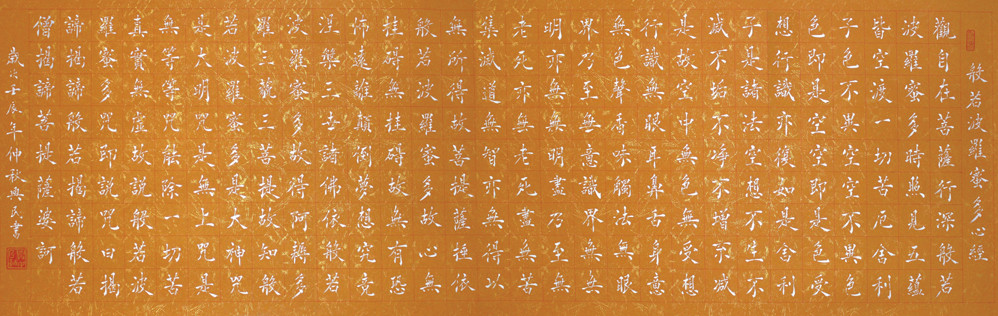 般若波羅蜜多心經
觀自在菩薩行深般若
波羅蜜多時照見五蘊
皆空渡一切苦厄舍利
子色不異空空不異色
色即是空空即是色受
想行識亦復如是舍利
子是諸法空想不生不
滅不垢不淨不增不減
是故空中無色無受想
行識無眼耳鼻舌身意
無色聲香味觸法無眼
界乃至無意識界無無
明亦無無明盡乃至無
老死亦無老死盡無苦
集滅道無智亦無得以
無所得故菩提薩埵依
般若波羅蜜多故心無
挂碍無挂碍故無有恐
怖遠離顛倒夢想究竟
涅槃三世諸佛依般若
波羅蜜多故得阿耨多
羅三藐三菩提故知般
若波羅蜜多是大神咒
是大明咒是無上咒是
無等等咒能除一切苦
真實無虛故說般若波
羅蜜多咒即說咒曰揭
諦揭諦般若揭諦般若
僧揭諦菩提薩婆訶
歲次壬辰年仲秋興民書